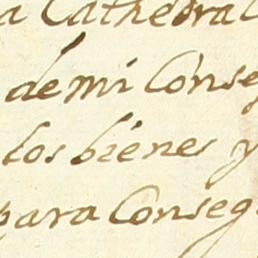 a Cathedral
demi Conse
los bienes y
para Conseg